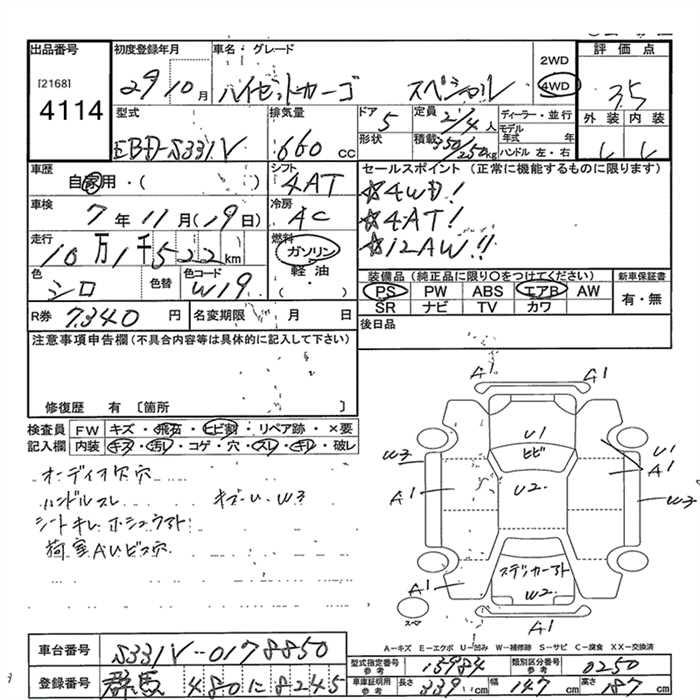 出品番号 初度登録年月 車名・グレード 2WD 評価点
[2168] 29 10月 ハイゼットカーゴ スペシャル 4WD 3.5
4114 外装 内装
型式 排気量 ドア 5 定員 2/4人 ディーラー・並行
EBD-S331V 660CC 形状 積載 350/250kg モデル年式 年
ハンドル 左・右
車歴 自家用・( ) シフト 4AT セールスポイント (正常に機能するものに限ります)
車検 7年11月(19日) 冷房 AC ☆4WD!
☆4AT!
走行 10万1千522km 燃料 ガソリン ☆12AW!!
軽油
・( )
色 シロ 色替 色コード W19 装備品(純正品に限り○をつけてください) 新車保証書
PS PW ABS エアB AW 有・無
SR ナビ TV カワ
R券 7,340円 名変期限 月 日 後日品
注意事項申告欄(不具合内容等は具体的に記入して下さい)
修復歴 有 [箇所 ]
検査員 FW キズ・飛石・ヒビ割・リペア跡・×要
記入欄 内装 キズ・汚レ・コゲ・穴・スレ・キレ・破レ
オーディオ欠穴
ハンドルスレ キズ・U・W3
シートキレ・ホシュウアト
荷室AUビス穴
A1 A1
U1
ヒビ
W3 U1
A1 A1
U2 W3
A1
ステッカーアト
W2
A1
スペア
A1
A−キズ E−エクボ U−凹み W−補修跡 S−サビ C−腐食 XX−交換済
車台番号 S331V-0178850
型式指定番号 参考 15984 類別区分番号 参考 0250
登録番号 群馬 480に8245
車庫証明用 参考 長さ 339cm 幅 147cm 高さ 187cm